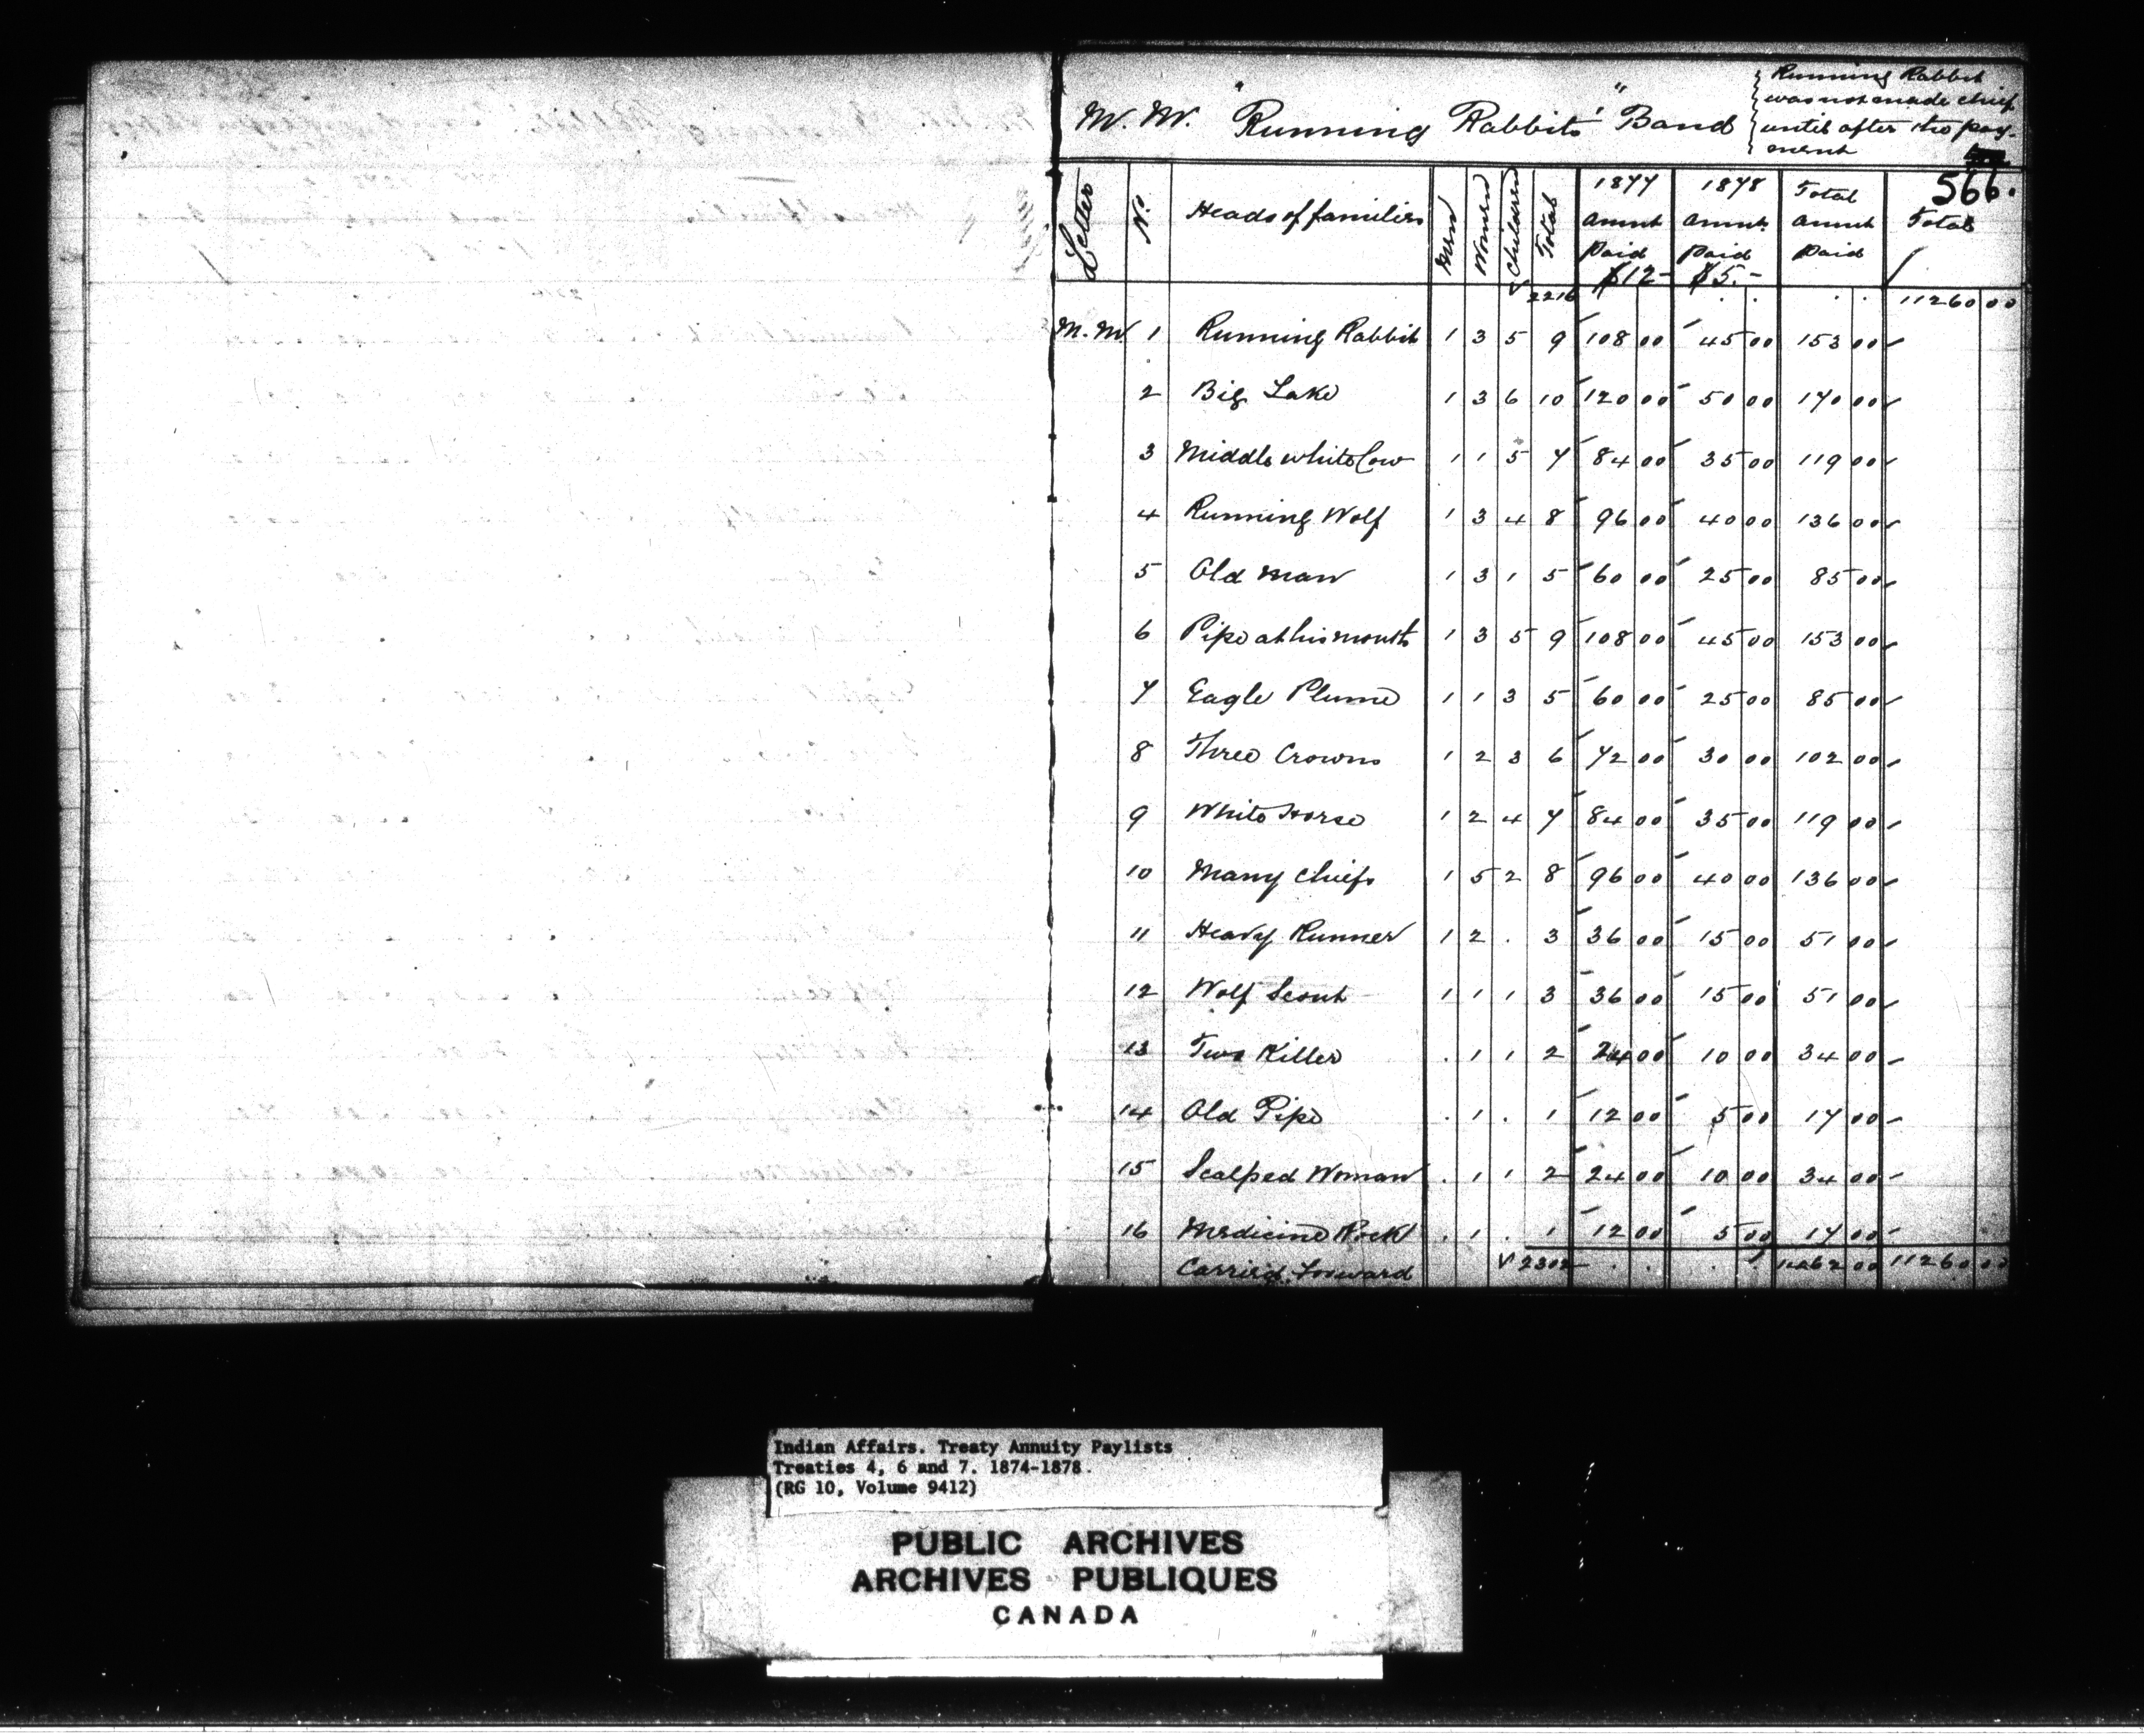 M. M. "Running Rabbits' " Band
Running Rabbit
was not made chief
until after the pay-
ment
566.
Letter No. Heads of families Men Women Children Total 1877 Amnt Paid $12- 1878 Amnt. Paid $5.- Total Amnt Paid Total
√ 2216 . . . . 11260 00
M. M. 1 Running Rabbit 1 3 5 9 108 00 45 00 153 00
2 Big Lake 1 3 6 10 120 00 50 00 170 00
3 Middle white Cow 1 1 5 7 84 00 35 00 119 00
4 Running Wolf 1 3 4 8 96 00 40 00 136 00
5 Old Man 1 3 1 5 60 00 25 00 85 00
6 Pipe at his mouth 1 3 5 9 108 00 45 00 153 00
7 Eagle Plume 1 1 3 5 60 00 25 00 85 00
8 Three Crows 1 2 3 6 72 00 30 00 102 00
9 White Horse 1 2 4 7 84 00 35 00 119 00
10 Many Chiefs 1 5 2 8 96 00 40 00 136 00
11 Heavy Runner 1 2 . 3 36 00 15 00 51 00
12 Wolf Scout 1 1 1 3 36 00 15 00 51 00
13 Two Killer . 1 1 2 24 00 10 00 34 00
14 Old Pipe . 1 . 1 12 00 5 00 17 00
15 Scalped Woman . 1 1 2 24 00 10 00 34 00
16 Medicine Rock . 1 . 1 12 00 5 00 17 00
Carried forward √ 2302 . . . 1462 00 11260 00
Indian Affairs. Treaty Annuity Paylists
Treaties 4, 6 and 7. 1874-1878.
(RG 10, Volume 9412)
PUBLIC ARCHIVES
ARCHIVES PUBLIQUES
CANADA